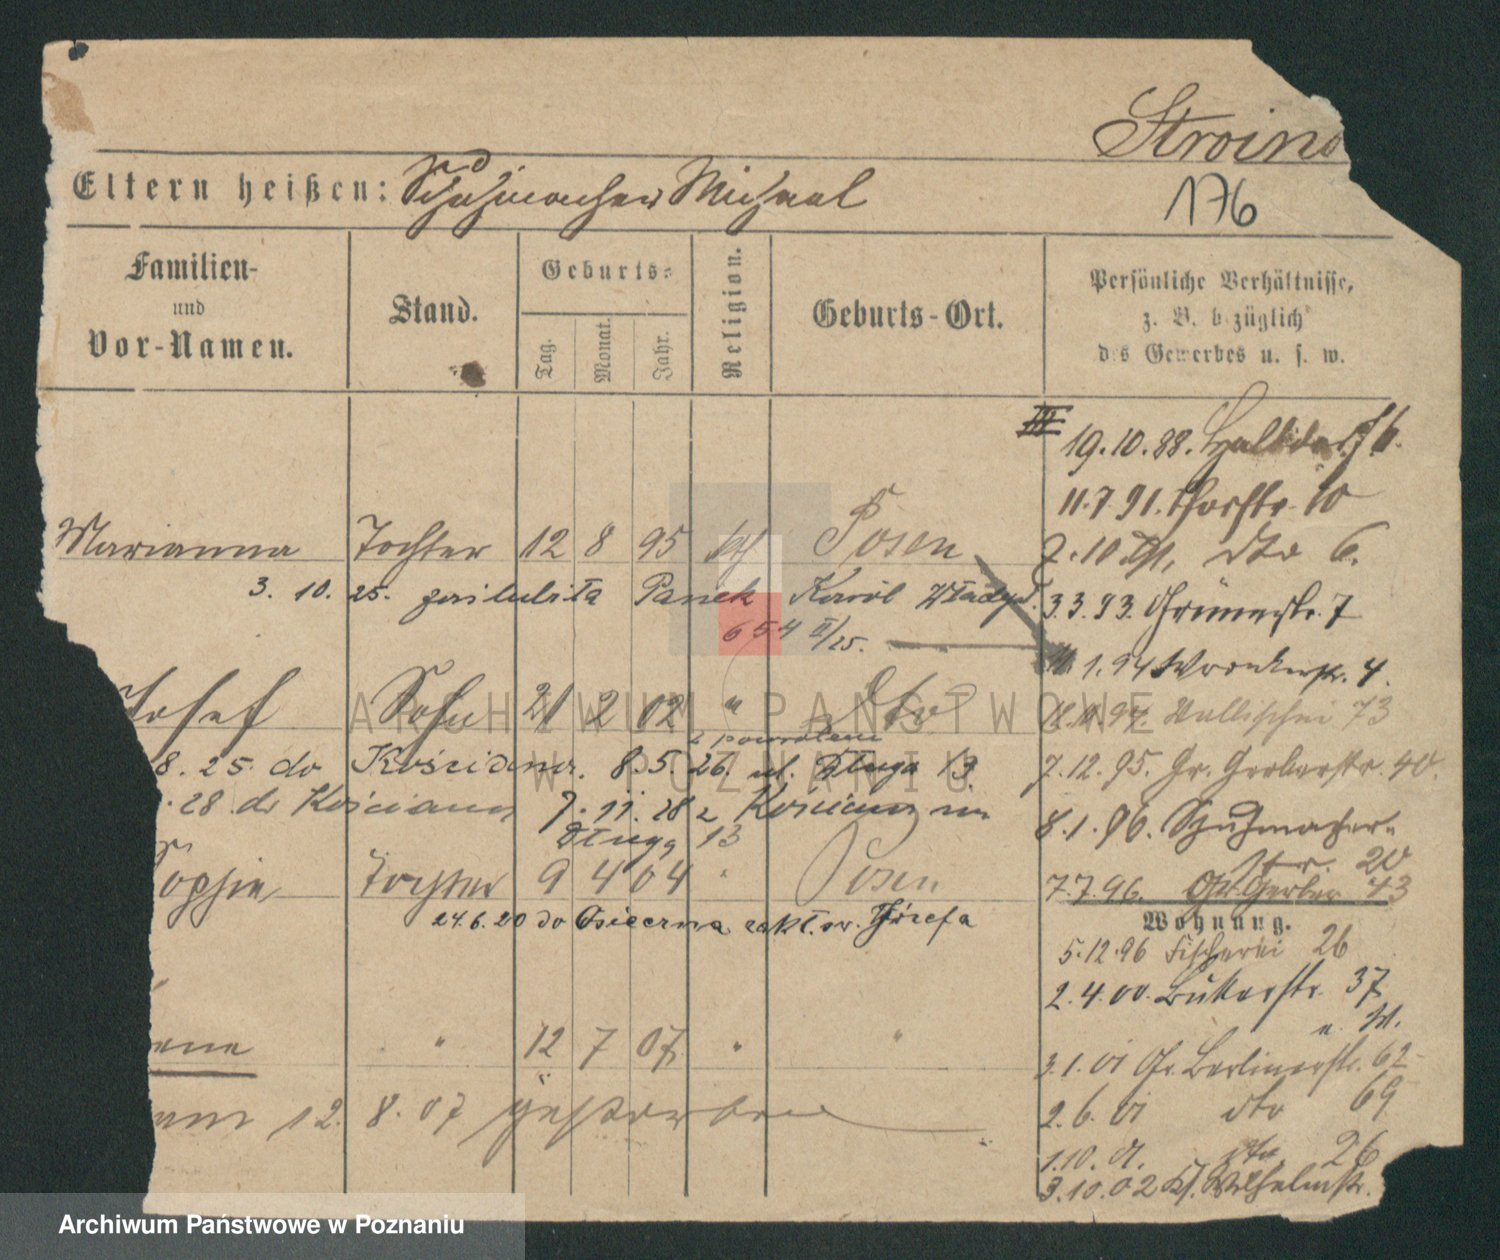 Stroin
176
Eltern heißen: Schuhmacher Michael
Familien-
und
Vor-Namen.
Stand.
Geburts-
Tag.
Monat.
Jahr.
Religion.
Geburts-Ort.
Persönliche Verhältnisse,
z. B. bezüglich
des Gewerbes u. s. w.
III
19.10.88. Halbdorf 6.
11.7.91. Thorstr. 10
Marianna Tochter 12 8 95 kth Posen
dto 6.
3. 10. 25. zaślubiła Panek Karól Władysł.
3.3.93. Grünestr. 7
654 II/25.
1.94 Wronkerstr. 4.
Josef Sohn 21 2 02 " dto
94. Wallischei 73
z powrotem
8. 25. do Kościana. 8.5.26. ul. Długa 13.
7.12.95. Gr. Gerberstr. 40.
.28 do Kościana 7.11.28 z Kościana na
Długą 13
8.1.96. Schuhmacher-
str. 20
ophie Tochter 9 4 04 " Posen
7.7.96. Gr. Gerber 43
24.6.20 do Osieczna zakł. sw. Józefa
Wohnung.
5.12.96 Fischerei 26
2.4.00. Bukerstr. 37
a. W.
ene " 12 7 07. " "
3.1.01 Gr. Berlinerstr. 62
am 12. 8. 07 gestorben
2.6.01 dto 69
1.10.01. dto 26
3.10.02 Kl. Wilhelmstr.
ARCHIWUM PAŃSTWOWE
W POZNANIU
Archiwum Państwowe w Poznaniu